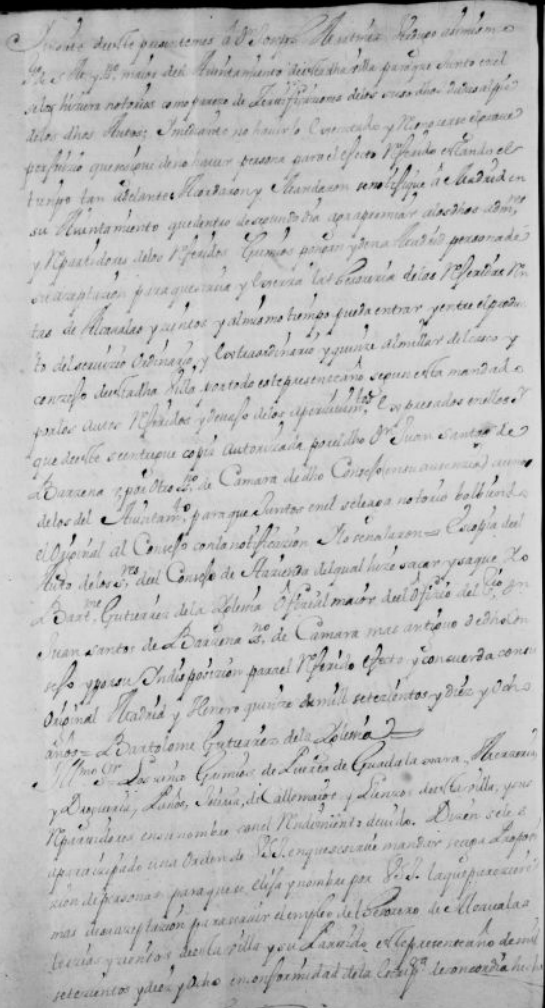 de este presentemos a Dn Joseph Martinez
mayor del Ayuntamiento de esta dha villa para que Junto en el
se los hiciera notorios como parece de Testifficaziones de los susodhos dadas al pie
de los dhos Autos; Imediante no haverlo executado y reconocerse el grave
perjuizio que se sigue de no haver persona para el efecto referido estando el
tiempo tan adelante Acordaron y Mandaron se notifique a Madrid en
su Ayuntamiento que dentro de segundo dia apremiar a los dhos
y Repartidores de los referidos Gremios pongan y den a Madrid persona de
su azeptazion para que sirva y exerza la thesoreria de las referidas Ren
tas de Alcavalas y cientos y al mismo tiempo pueda entrar y entre el produc
to del servizio Ordinario, y Extraordinario y quinze al millar del casco y
conzejo de esta dha Villa, por todo este presente año segun esta mandado
por los Autos referidos y devajo de los apercevimtos expresados en ellos Y
que de este se entregue copia Autorizada por el dho Dn Juan Santos de
Barzena y por otro sno de Camara de dho Consejo en su ausenzia) a uno
de los del Ayuntamto para que Juntos en el se le aga notorio bolbiendo
el Original al Consejo con la notificazion Y lo señalaron = Es copia del
Auto de los sres del Consejo de Hazienda del qual hize sacar y saque Yo
Bartme Gutierrez de la Yglesia Offizial maior del Offizio del Sno Dn
Juan Santos de Barzena sno de Camara mas antiguo de dho Con
sejo y por su Indisposizion para el referido efecto y concuerda con su
Original Madrid y Henero quinze de mill setezientos y diez y Ocho
años = Bartolome Gutierrez de la Yglesia =
Yllmo Sr Los cinco Gremios de Puerta de Guadalaxara, Merzeria,
y Drogueria, Paños, Joieria, de Calle maior y Lienzos de esta villa, y sus
Repartidores en su nombre con el Rendimiento devido. Dizen se les
a partizipado una Orden de VSI. en que se sirve mandar se aga Propos
izion de personas para que se elija y nombre por VSI. la que pareziere
mas de su azeptazion para servir el empleo del thesorero de Alcavalas
terzias y zientos de esta villa y su Partido, este presente año de mil
setezientos y diez y Ocho en conformidad de la de concordia hecha